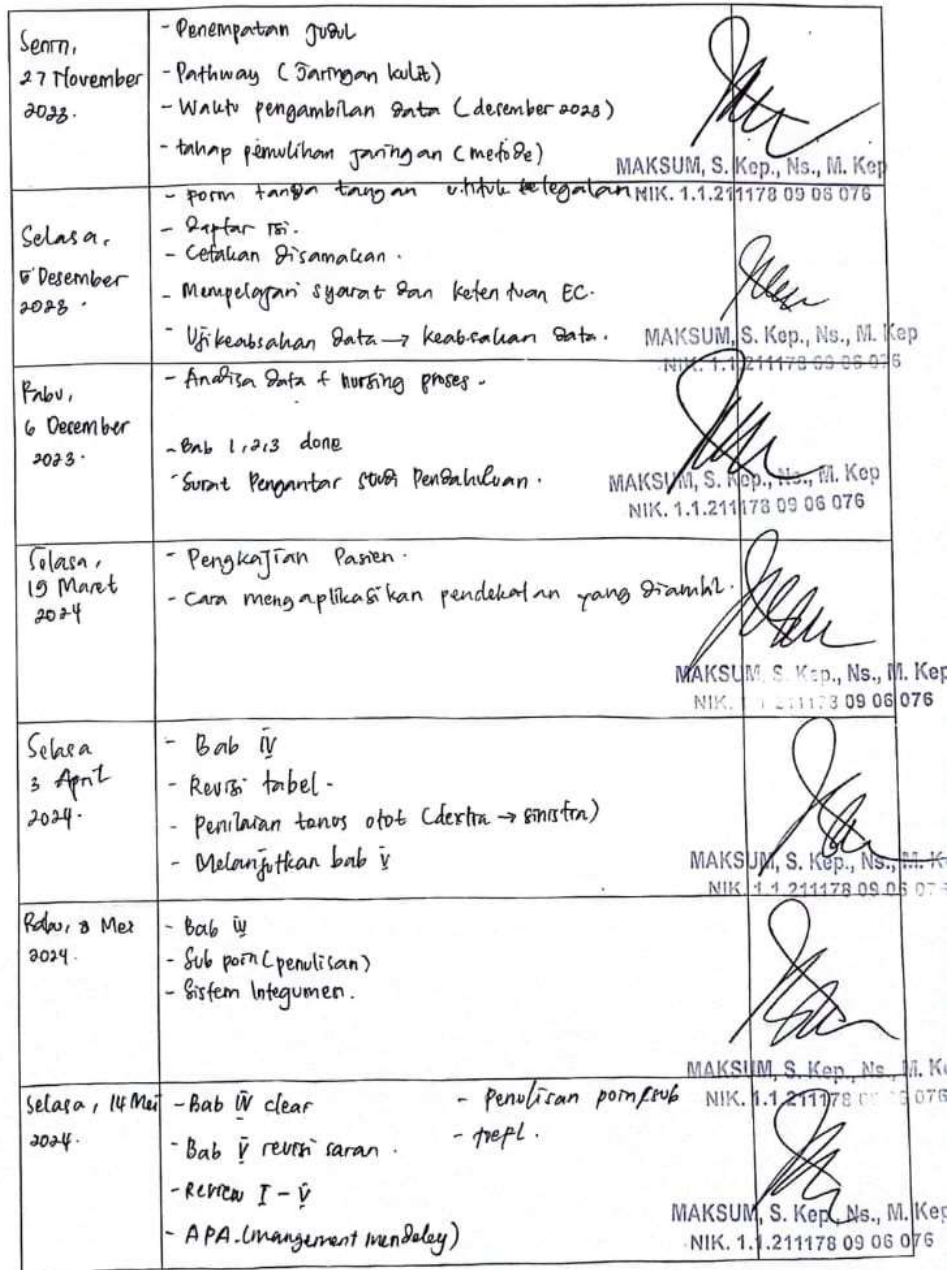 Senin,
27 November
2023.
- Penempatan judul
- Pathway (Jaringan kulit)
- Waktu pengambilan data (desember 2023)
- tahap pemulihan jaringan (metode)
MAKSUM, S. Kep., Ns., M. Kep
NIK. 1.1.211178 09 06 076
Selasa,
5 Desember
2023.
- Form tanda tangan untuk kelegalan
- Daftar isi.
- Cetakan disamakan.
- Mempelajari syarat dan ketentuan EC.
- Uji keabsahan data → keabsahan data.
MAKSUM, S. Kep., Ns., M. Kep
NIK. 1.1.211178 09 06 076
Rabu,
6 Desember
2023.
- Analisa data + nursing proses.
- Bab 1,2,3 done
- Surat Pengantar studi Pendahuluan.
MAKSUM, S. Kep., Ns., M. Kep
NIK. 1.1.211178 09 06 076
Selasa,
19 Maret
2024
- Pengkajian Pasien.
- Cara mengaplikasikan pendekatan yang diambil.
MAKSUM, S. Kep., Ns., M. Kep
NIK. 1.1.211178 09 06 076
Selasa
3 April
2024.
- Bab IV
- Revisi tabel.
- Penilaian tonus otot (dextra → sinistra)
- Melanjutkan bab V
MAKSUM, S. Kep., Ns., M. Ke
NIK. 1.1.211178 09 06 076
Rabu, 8 Mei
2024.
- Bab IV
- Sub poin (penulisan)
- Sistem Integumen.
MAKSUM, S. Kep., Ns., M. Ke
NIK. 1.1.211178 09 06 076
Selasa, 14 Mei
2024.
- Bab IV clear
- Bab V revisi saran.
- Review I - V
- APA. (mangement mendeley)
- Penulisan poin/sub
MAKSUM, S. Kep., Ns., M. Kep
NIK. 1.1.211178 09 06 076